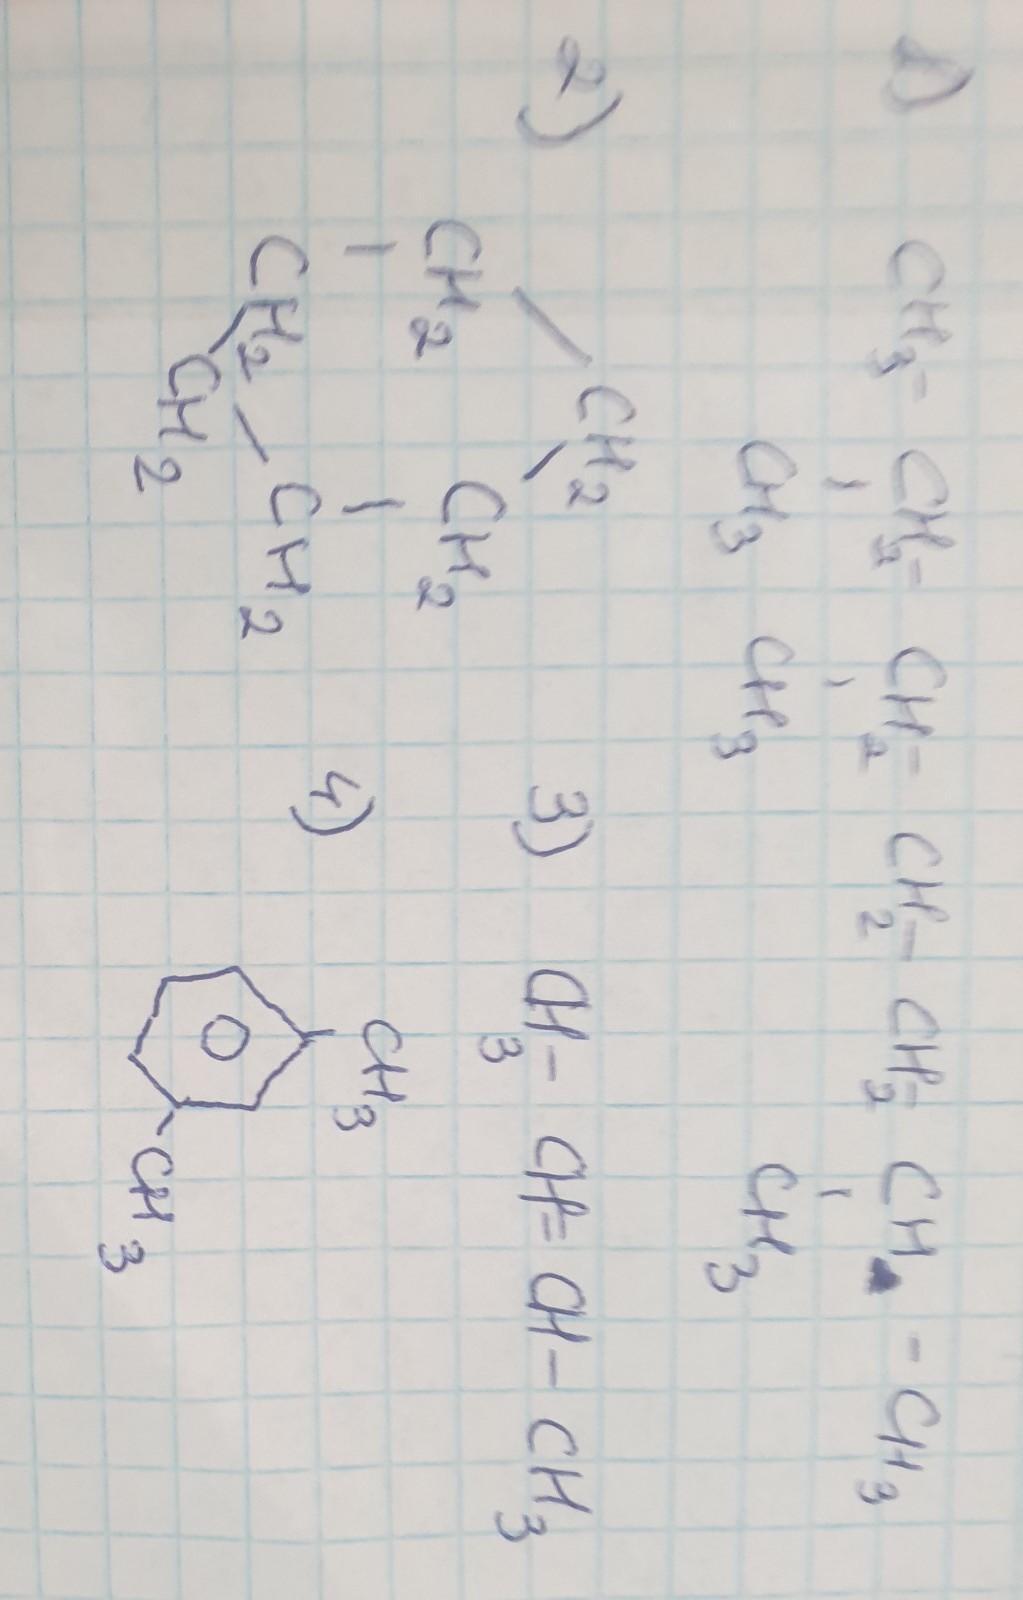 1) CH3 - CH2 - CH2 - CH2 - CH2 - CH - CH3
CH3 CH3 CH3
2) CH2
CH2 CH2
CH2 CH2
CH2
3) CH3 - CH = CH - CH3
4) CH3
CH3